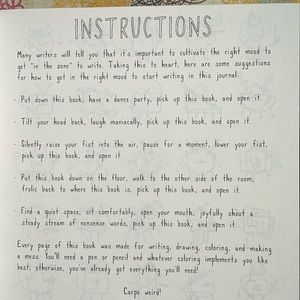 INSTRUCTIONS
Many writers will tell you that it's important to cultivate the right mood to
get "in the zone" to write. Taking this to heart, here are some suggestions
for how to get in the right mood to start writing in this journal:
- Put down this book, have a dance party, pick up this book, and open it.
- Tilt your head back, laugh maniacally, pick up this book, and open it.
- Silently raise your fist into the air, pause for a moment, lower your fist,
pick up this book, and open it.
- Put this book down on the floor, walk to the other side of the room,
frolic back to where this book is, pick up this book, and open it.
- Find a quiet space, sit comfortably, open your mouth, joyfully shout a
steady stream of nonsense words, pick up this book, and open it.
Every page of this book was made for writing, drawing, coloring, and making
a mess. You'll need a pen or pencil and whatever coloring implements you like
best; otherwise, you've already got everything you'll need!
Carpe weird!